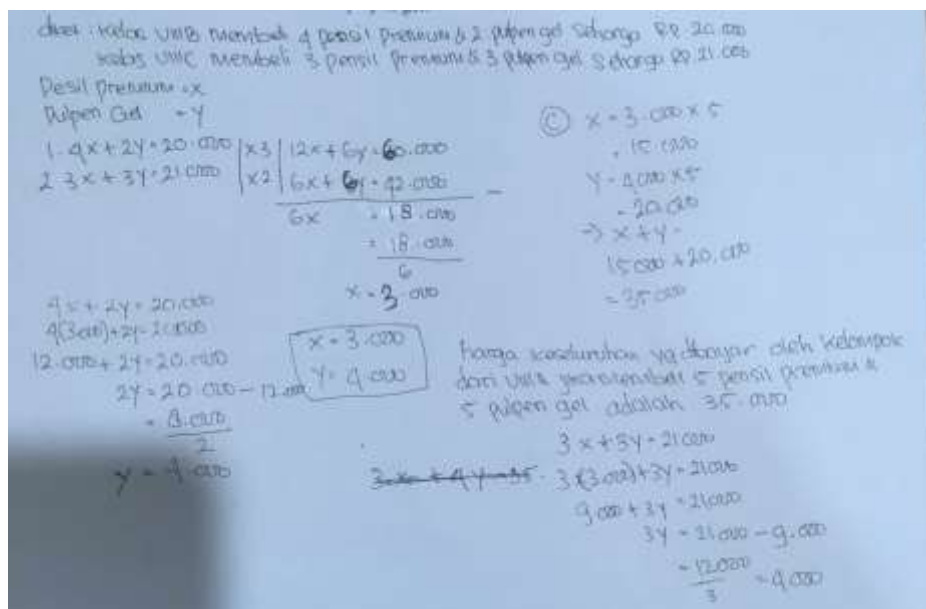 diket : Kelas VIIIB membeli 4 pensil premium & 2 pulpen gel seharga Rp 20.000
kelas VIIIC membeli 3 pensil premium & 3 pulpen gel seharga Rp 21.000
Pesil premium = x
Pulpen Gel = y
1. 4x + 2y = 20.000 | x3 | 12x + 6y = 60.000
2 3x + 3y = 21.000 | x2 | 6x + 6y = 42.000 -
6x = 18.000
= 18.000
6
x = 3.000
4x + 2y = 20.000
4(3.000) + 2y = 20.000
12.000 + 2y = 20.000
2y = 20.000 - 12.000
= 8.000
2
y = 4.000
x = 3.000
y = 4.000
C x = 3.000 x 5
= 15.000
y = 4.000 x 5
= 20.000
→ x + y =
15.000 + 20.000
= 35.000
harga keseluruhan yg dibayar oleh kelompok
dari VIIIB membeli 5 pensil premium &
5 pulpen gel adalah 35.000
3x + 3y = 21.000
3x + 4y = 35. 3(3.000) + 3y = 21.000
9.000 + 3y = 21.000
3y = 21.000 - 9.000
= 12.000
3
= 4.000